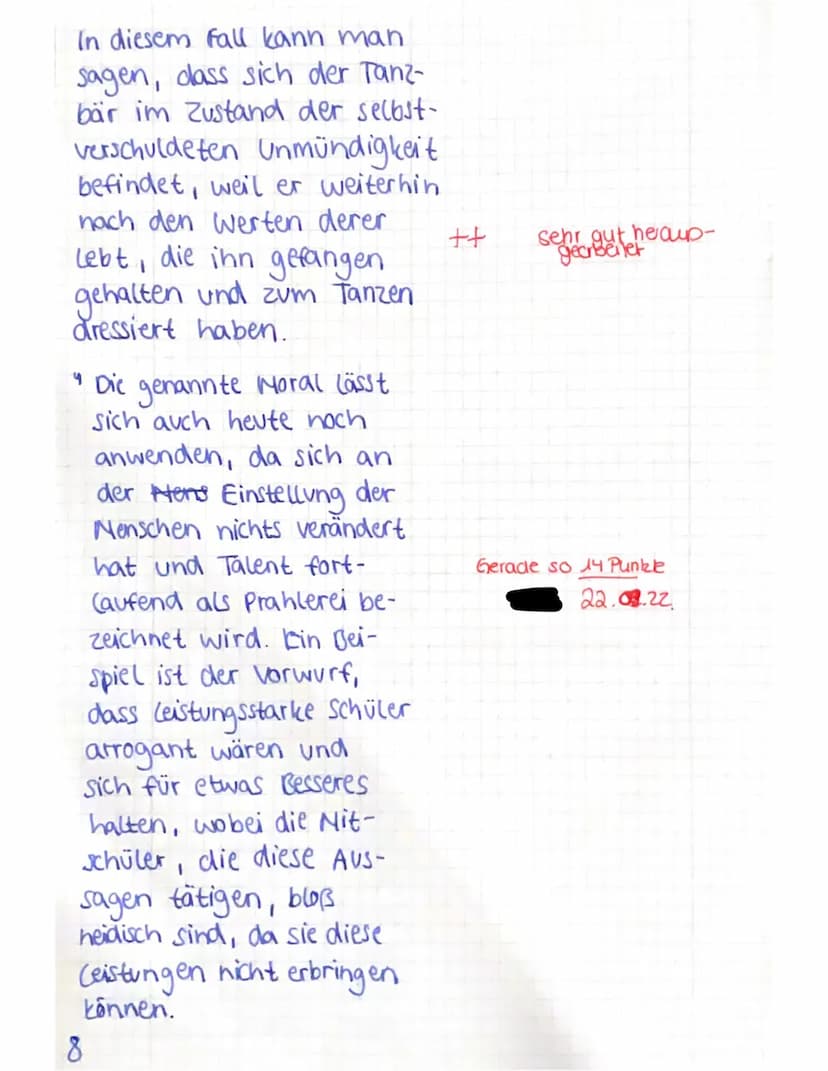 In diesem Fall kann man
sagen, dass sich der Tanz-
bär im Zustand der selbst-
verschuldeten Unmündigkeit
befindet, weil er weiterhin
nach den Werten derer
lebt, die ihn gefangen
gehalten und zum Tanzen
dressiert haben.
++ sehr gut heraus-
gearbeitet
4 Die genannte Moral lässt
sich auch heute noch
anwenden, da sich an
der Einstellung der
Menschen nichts verändert
hat und Talent fort-
laufend als Prahlerei be-
zeichnet wird. Ein Bei-
spiel ist der Vorwurf,
dass leistungsstarke Schüler
arrogant wären und
sich für etwas Besseres
halten, wobei die Mit-
schüler, die diese Aus-
sagen tätigen, bloß
neidisch sind, da sie diese
Leistungen nicht erbringen
können.
Gerade so 14 Punkte
8